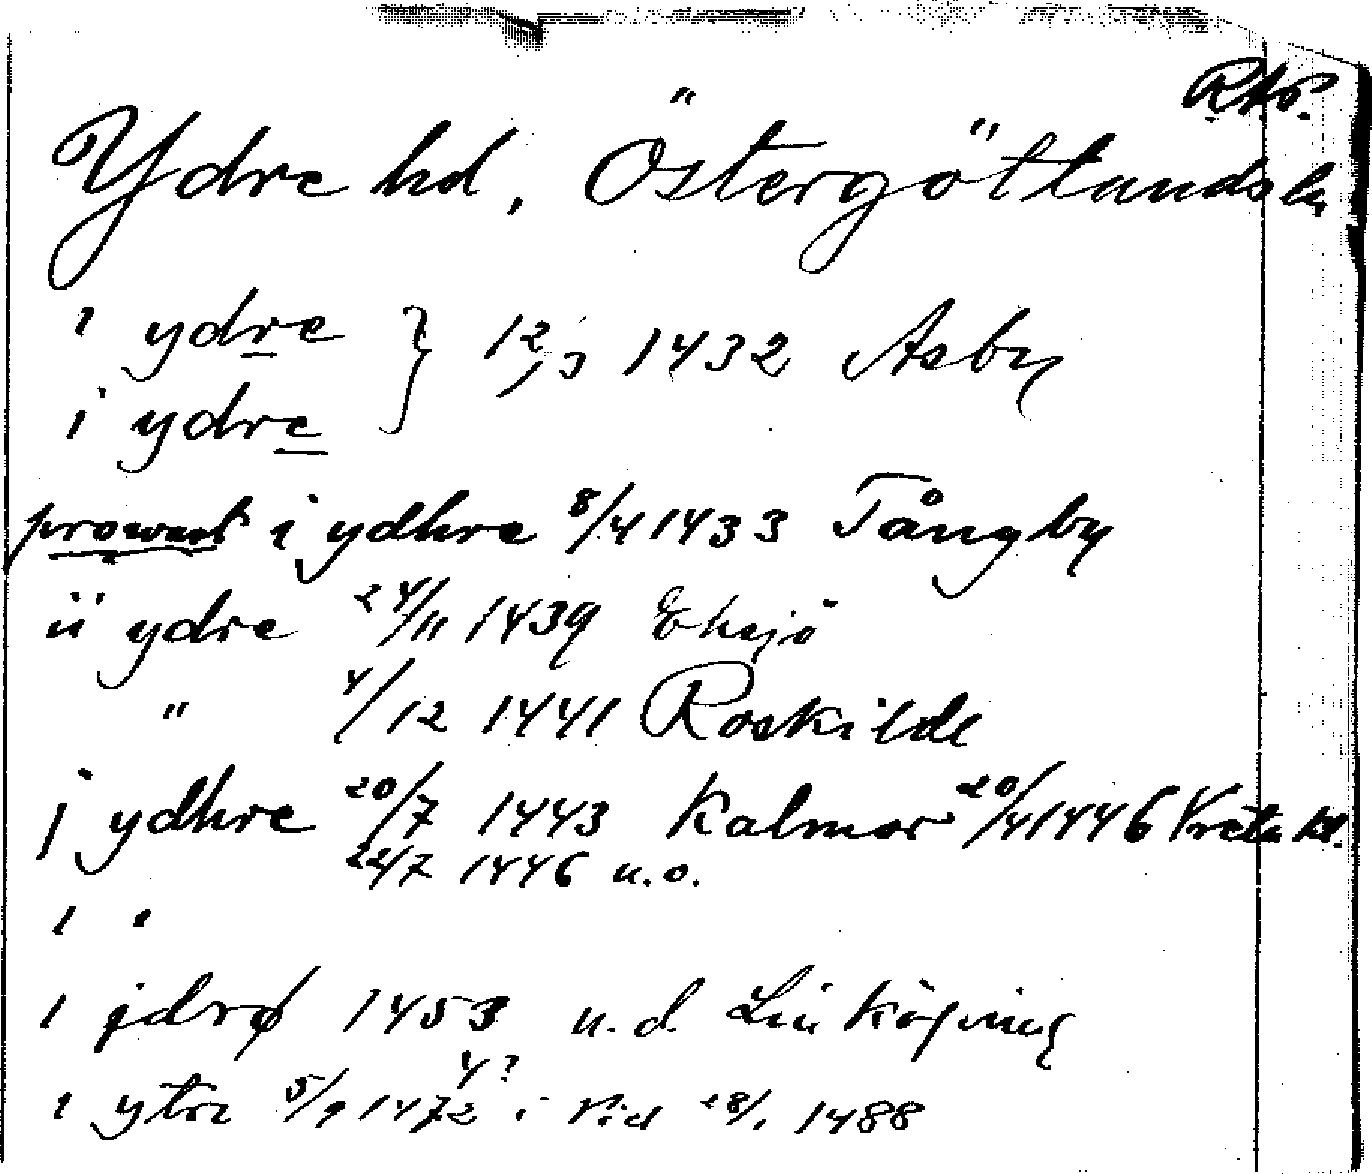 Ydre hd, Östergötlands
i ydre } 12/3 1432 Asby
i ydre
prowast i ydhre 8/4 1433 Tångby
ii ydre 24/11 1439 Eksjö
" 4/12 1441 Roskilde
j ydhre 20/7 1443 Kalmar 20/4 1446 Vreta kl.
22/7 1446 u.o.
i "
i jdrø 1453 u.d. Linköping
4?
i ytre 5/9 1472 i 28/1 1488